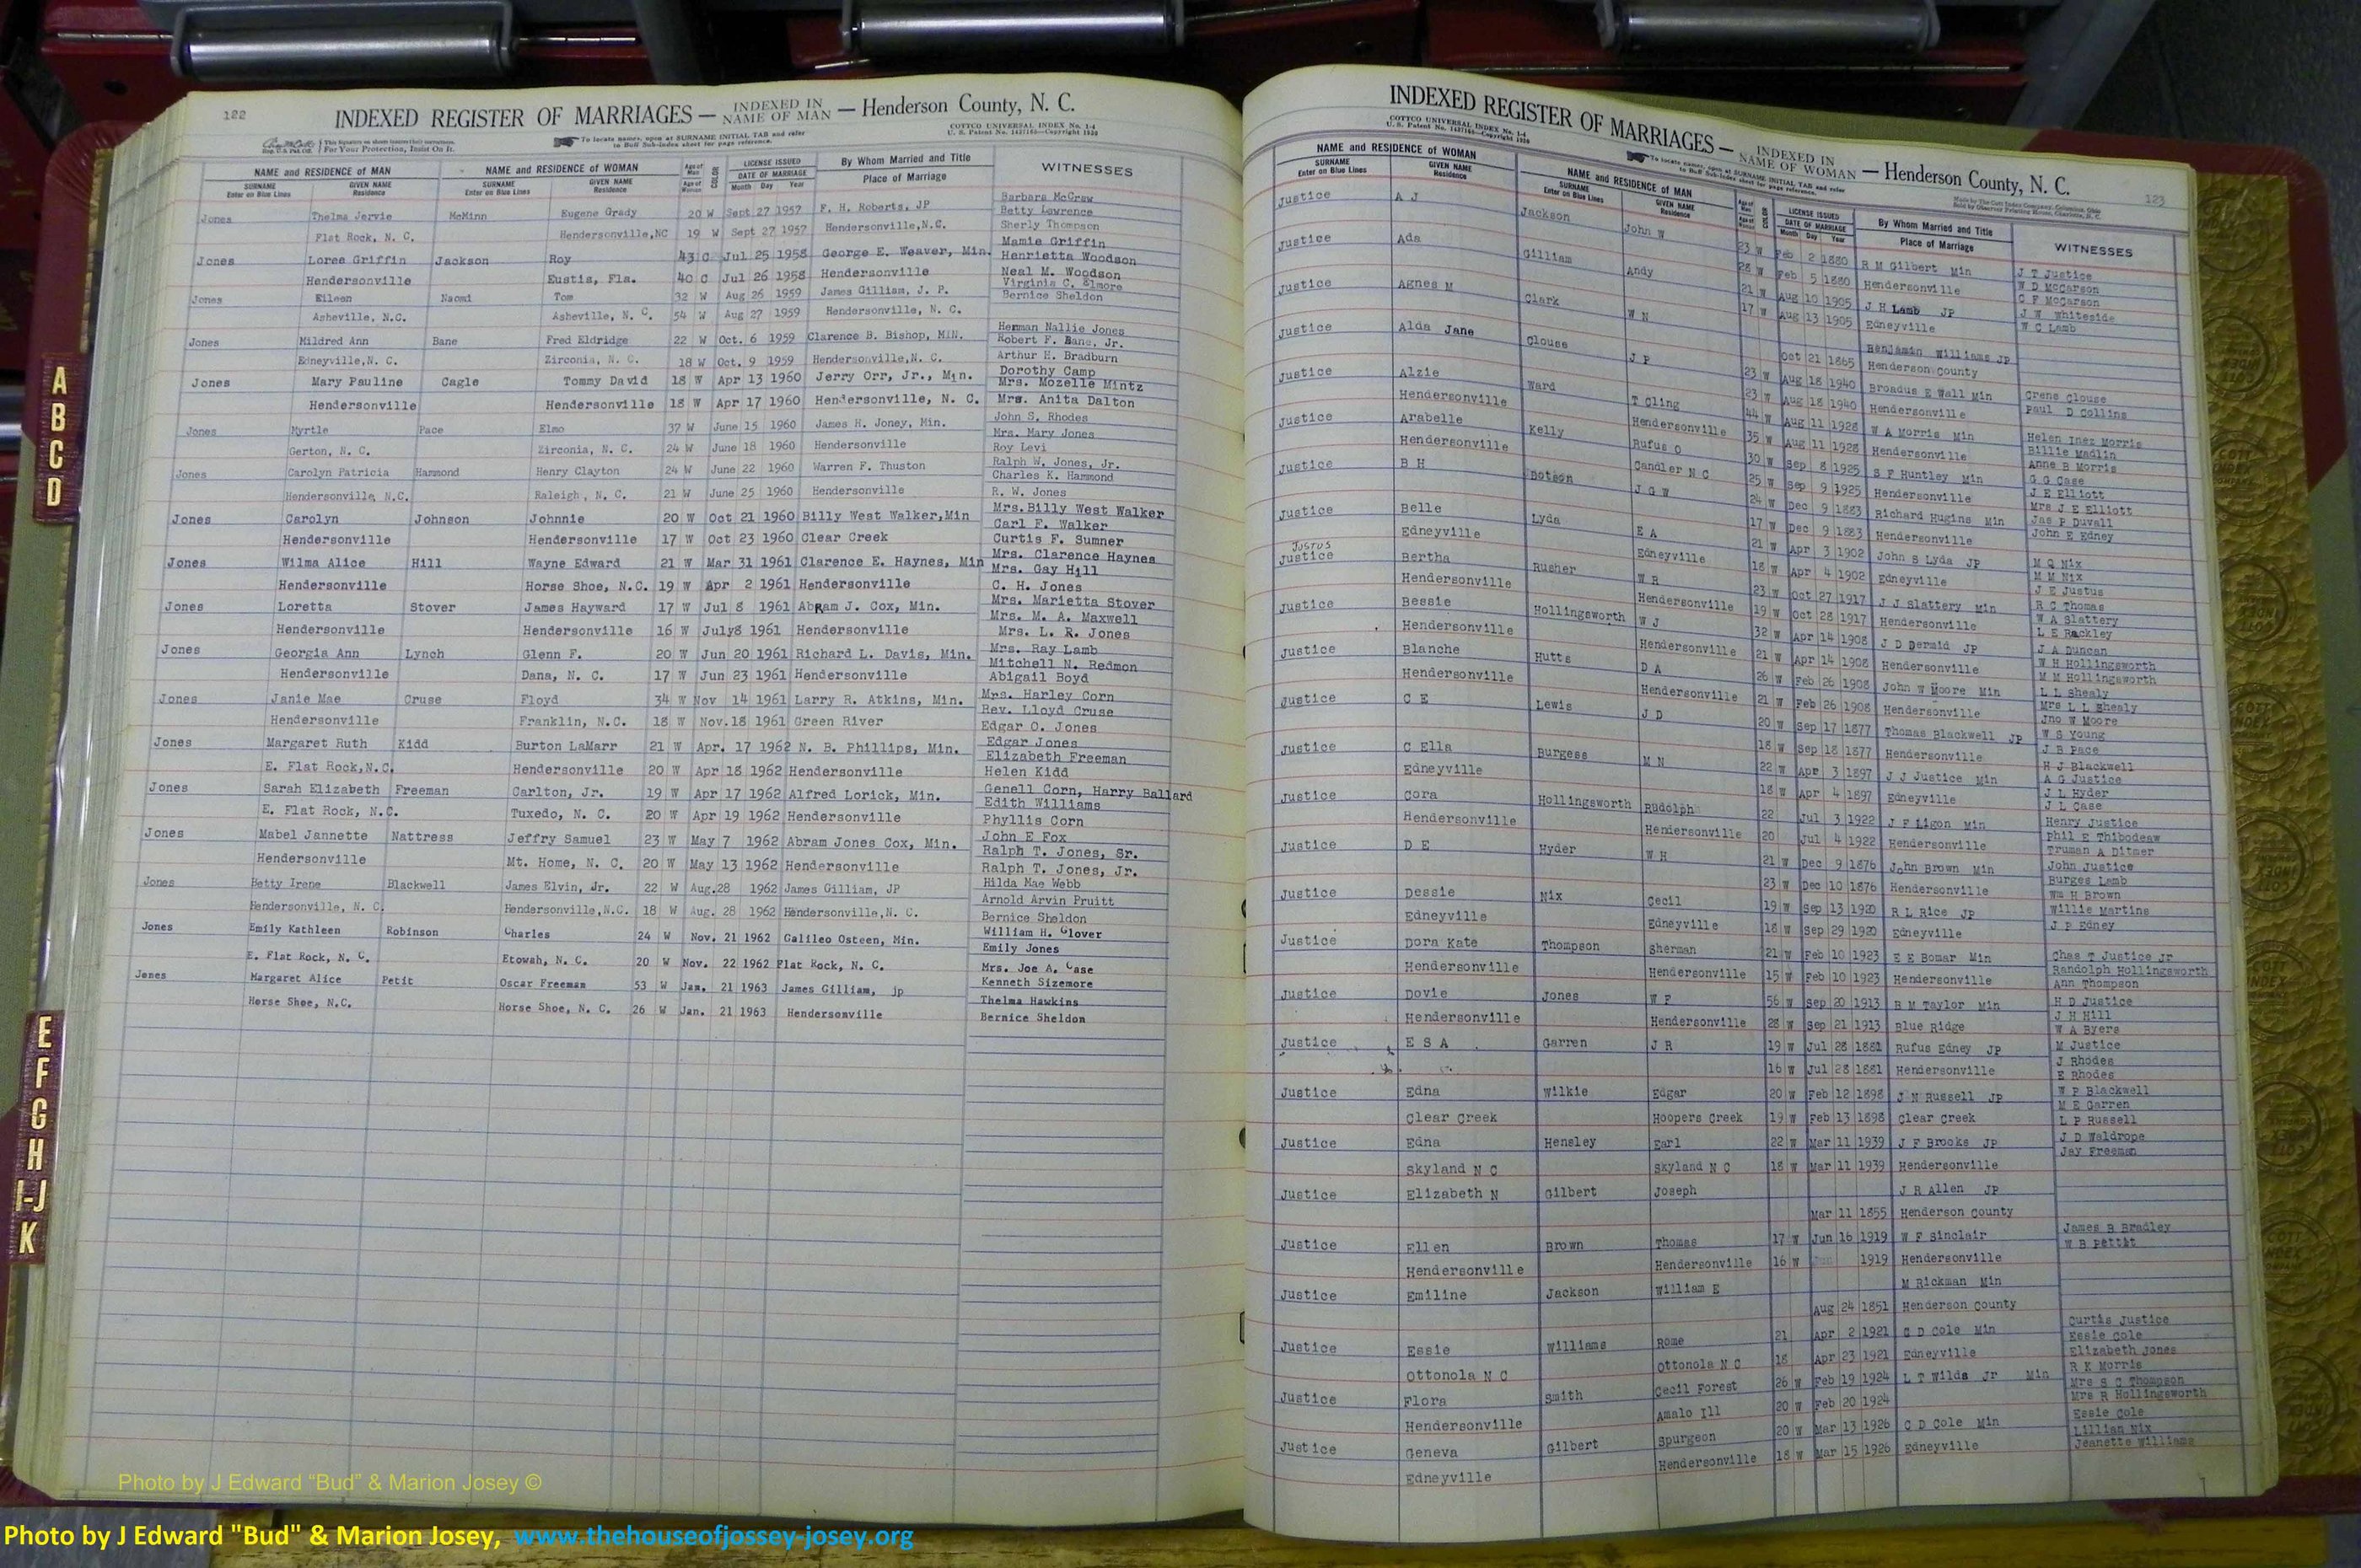 122
INDEXED REGISTER OF MARRIAGES — INDEXED IN NAME OF MAN — Henderson County, N. C.
COTTCO UNIVERSAL INDEX No. 1-4
To locate names, open at SURNAME INITIAL TAB and refer
to Buff Sub-Index sheet for page reference.
For Your Protection, Insist On It.
NAME and RESIDENCE OF MAN NAME and RESIDENCE OF WOMAN Age of Man Age of Woman COLOR LICENSE ISSUED DATE OF MARRIAGE By Whom Married and Title WITNESSES
SURNAME Enter on Blue Lines GIVEN NAME Residence SURNAME Enter on Blue Lines GIVEN NAME Residence Month Day Year Place of Marriage
Barbara McGraw
Jones Thelma Jervie McMinn Eugene Grady 20 W Sept 27 1957 F. H. Roberts, JP Betty Lawrence
Flat Rock, N. C. Hendersonville,NC 19 W Sept 27 1957 Hendersonville,N.C. Sherly Thompson
Mamie Griffin
Jones Loree Griffin Jackson Roy 43 C Jul 25 1958 George E. Weaver, Min. Henrietta Woodson
Hendersonville Eustis, Fla. 40 C Jul 26 1958 Hendersonville Neal M. Woodson
Jones Eileen Naomi Tom 32 W Aug 26 1959 James Gilliam, J. P. Virginia C. Elmore
Bernice Sheldon
Asheville, N.C. Asheville, N. C. 54 W Aug 27 1959 Hendersonville, N. C.
Herman Nallie Jones
Jones Mildred Ann Bane Fred Eldridge 22 W Oct. 6 1959 Clarence B. Bishop, MIN. Robert F. Bane, Jr.
Edneyville,N. C. Zirconia, N. C. 18 W Oct. 9 1959 Hendersonville,N. C. Arthur H. Bradburn
Dorothy Camp
Jones Mary Pauline Cagle Tommy David 18 W Apr 13 1960 Jerry Orr, Jr., Min. Mrs. Mozelle Mintz
Hendersonville Hendersonville 18 W Apr 17 1960 Hendersonville, N. C. Mrs. Anita Dalton
John S. Rhodes
Jones Myrtle Pace Elmo 37 W June 15 1960 James H. Joney, Min. Mrs. Mary Jones
Gerton, N. C. Zirconia, N. C. 24 W June 18 1960 Hendersonville Roy Levi
Ralph W. Jones, Jr.
Jones Carolyn Patricia Hammond Henry Clayton 24 W June 22 1960 Warren F. Thuston Charles K. Hammond
Hendersonville, N.C. Raleigh, N. C. 21 W June 25 1960 Hendersonville R. W. Jones
Mrs.Billy West Walker
Jones Carolyn Johnson Johnnie 20 W Oct 21 1960 Billy West Walker,Min Carl F. Walker
Hendersonville Hendersonville 17 W Oct 23 1960 Clear Creek Curtis F. Sumner
Mrs. Clarence Haynes
Jones Wilma Alice Hill Wayne Edward 21 W Mar 31 1961 Clarence E. Haynes, Min Mrs. Gay Hill
Hendersonville Horse Shoe, N.C. 19 W Apr 2 1961 Hendersonville C. H. Jones
Jones Loretta Stover James Hayward 17 W Jul 8 1961 Abram J. Cox, Min. Mrs. Marietta Stover
Mrs. M. A. Maxwell
Hendersonville Hendersonville 16 W July8 1961 Hendersonville Mrs. L. R. Jones
Jones Georgia Ann Lynch Glenn F. 20 W Jun 20 1961 Richard L. Davis, Min. Mrs. Ray Lamb
Mitchell N. Redmon
Hendersonville Dana, N. C. 17 W Jun 23 1961 Hendersonville Abigail Boyd
Jones Janie Mae Cruse Floyd 34 W Nov 14 1961 Larry R. Atkins, Min. Mrs. Harley Corn
Rev. Lloyd Cruse
Hendersonville Franklin, N.C. 18 W Nov.18 1961 Green River Edgar O. Jones
Jones Margaret Ruth Kidd Burton LaMarr 21 W Apr. 17 1962 N. B. Phillips, Min. Edgar Jones
Elizabeth Freeman
E. Flat Rock,N.C. Hendersonville 20 W Apr 18 1962 Hendersonville Helen Kidd
Jones Sarah Elizabeth Freeman Carlton, Jr. 19 W Apr 17 1962 Alfred Lorick, Min. Genell Corn, Harry Ballard
Edith Williams
E. Flat Rock, N.C. Tuxedo, N. C. 20 W Apr 19 1962 Hendersonville Phyllis Corn
Jones Mabel Jannette Nattress Jeffry Samuel 23 W May 7 1962 Abram Jones Cox, Min. John E Fox
Ralph T. Jones, Sr.
Hendersonville Mt. Home, N. C. 20 W May 13 1962 Hendersonville Ralph T. Jones, Jr.
Jones Betty Irene Blackwell James Elvin, Jr. 22 W Aug.28 1962 James Gilliam, JP Hilda Mae Webb
Arnold Arvin Pruitt
Hendersonville, N. C. Hendersonville,N.C. 18 W Aug. 28 1962 Hendersonville,N. C. Bernice Sheldon
Jones Emily Kathleen Robinson Charles 24 W Nov. 21 1962 Galileo Osteen, Min. William H. Glover
Emily Jones
E. Flat Rock, N. C. Etowah, N. C. 20 W Nov. 22 1962 Flat Rock, N. C. Mrs. Joe A. Case
Jones Margaret Alice Petit Oscar Freeman 53 W Jan. 21 1963 James Gilliam, jp Kenneth Sizemore
Thelma Hawkins
Horse Shoe, N.C. Horse Shoe, N. C. 26 W Jan. 21 1963 Hendersonville Bernice Sheldon
A
B
C
D
E
F
G
H
I-J
K
Photo by J Edward “Bud” & Marion Josey ©
INDEXED REGISTER OF MARRIAGES — INDEXED IN NAME OF WOMAN — Henderson County, N. C.
COTTCO UNIVERSAL INDEX No. 1-4
123
NAME and RESIDENCE OF WOMAN NAME and RESIDENCE OF MAN LICENSE ISSUED DATE OF MARRIAGE By Whom Married and Title WITNESSES
SURNAME Enter on Blue Lines GIVEN NAME Residence SURNAME Enter on Blue Lines GIVEN NAME Residence Month Day Year Place of Marriage
Justice A J Jackson John W 23 W Feb 2 1880 R M Gilbert Min J T Justice
28 W Feb 5 1880 Hendersonville W D McCarson
C F McCarson
Justice Ada Gilliam Andy 21 W Aug 10 1905 J H Lamb JP J W Whiteside
17 W Aug 13 1905 Edneyville W C Lamb
Justice Agnes M Clark W N Benjamin Williams JP
Oct 21 1865 Henderson County
Justice Alda Jane Clouse J P 23 W Aug 18 1940 Broadus E Wall Min Crene Clouse
23 W Aug 18 1940 Hendersonville Paul D Collins
Justice Alzie Ward T Cling 44 W Aug 11 1928 W A Morris Min Helen Inez Morris
Hendersonville Hendersonville 35 W Aug 11 1928 Hendersonville Billie Madlin
Anne B Morris
Justice Arabelle Kelly Rufus O 30 W Sep 8 1925 S F Huntley Min G G Case
Hendersonville Candler N C 25 W Sep 9 1925 Hendersonville J E Elliott
Mrs J E Elliott
Justice B H Botson J G W 24 W Dec 9 1883 Richard Hugins Min Jas P Duvall
17 W Dec 9 1883 Hendersonville John E Edney
Justice Belle Lyda E A 21 W Apr 3 1902 John S Lyda JP M Q Nix
Edneyville Edneyville 18 W Apr 4 1902 Edneyville M M Nix
J E Justus
Justus
Justice Bertha Rusher W R 23 W Oct 27 1917 J J Slattery Min R C Thomas
Hendersonville Hendersonville 19 W Oct 28 1917 Hendersonville W A Slattery
L E Rackley
Justice Bessie Hollingsworth W J 32 W Apr 14 1908 J D Dermid JP J A Duncan
Hendersonville Hendersonville 21 W Apr 14 1908 Hendersonville W H Hollingsworth
M M Hollingsworth
Justice Blanche Hutts D A 26 W Feb 26 1908 John W Moore Min L L Shealy
Hendersonville Hendersonville 21 W Feb 26 1908 Hendersonville Mrs L L Shealy
Jno W Moore
Justice C E Lewis J D 20 W Sep 17 1877 Thomas Blackwell JP W S Young
18 W Sep 18 1877 Hendersonville J B Pace
H J Blackwell
Justice C Ella Burgess M N 22 W Apr 3 1897 J J Justice Min A G Justice
Edneyville 18 W Apr 4 1897 Edneyville J L Hyder
J L Case
Justice Cora Hollingsworth Rudolph 22 Jul 3 1922 J F Ligon Min Henry Justice
Hendersonville Hendersonville 20 Jul 4 1922 Hendersonville Phil E Thibodeaw
Truman A Ditmer
Justice D E Hyder W H 21 W Dec 9 1876 John Brown Min John Justice
23 W Dec 10 1876 Hendersonville Burges Lamb
Wm H Brown
Justice Dessie Nix Cecil 19 W Sep 13 1920 R L Rice JP Willie Martins
Edneyville Edneyville 18 W Sep 29 1920 Edneyville J P Edney
Justice Dora Kate Thompson Sherman 21 W Feb 10 1923 E E Bomar Min Chas T Justice Jr
Hendersonville Hendersonville 15 W Feb 10 1923 Hendersonville Randolph Hollingsworth
Ann Thompson
Justice Dovie Jones W F 56 W Sep 20 1913 B M Taylor Min H D Justice
J H Hill
Hendersonville Hendersonville 28 W Sep 21 1913 Blue Ridge W A Byers
Justice E S A Garren J R 19 W Jul 28 1881 Rufus Edney JP M Justice
J Rhodes
16 W Jul 28 1881 Hendersonville E Rhodes
Justice Edna Wilkie Edgar 20 W Feb 12 1898 J N Russell JP W P Blackwell
M E Garren
Clear Creek Hoopers Creek 19 W Feb 13 1898 Clear Creek L P Russell
Justice Edna Hensley Earl 22 W Mar 11 1939 J F Brooks JP J D Waldrope
Jay Freeman
Skyland N C Skyland N C 18 W Mar 11 1939 Hendersonville
Justice Elizabeth N Gilbert Joseph J R Allen JP
Mar 11 1855 Henderson County
Justice Ellen Brown Thomas 17 W Jun 16 1919 W F Sinclair James B Bradley
W B Pettit
Hendersonville Hendersonville 16 W 1919 Hendersonville
Justice Emiline Jackson William E M Rickman Min
Aug 24 1851 Henderson County
Curtis Justice
Justice Essie Williams Rome 21 Apr 2 1921 C D Cole Min Essie Cole
Ottonola N C Ottonola N C 18 Apr 23 1921 Edneyville Elizabeth Jones
R K Morris
Justice Flora Smith Cecil Forest 26 W Feb 19 1924 L T Wilds Jr Min Mrs S C Thompson
Hendersonville Amalo Ill 20 W Feb 20 1924 Mrs R Hollingsworth
Essie Cole
Justice Geneva Gilbert Spurgeon 20 W Mar 13 1926 C D Cole Min Lillian Nix
Edneyville Hendersonville 18 W Mar 15 1926 Edneyville Jeanette Williams
Photo by J Edward "Bud" & Marion Josey, www.thehouseofjossey-josey.org